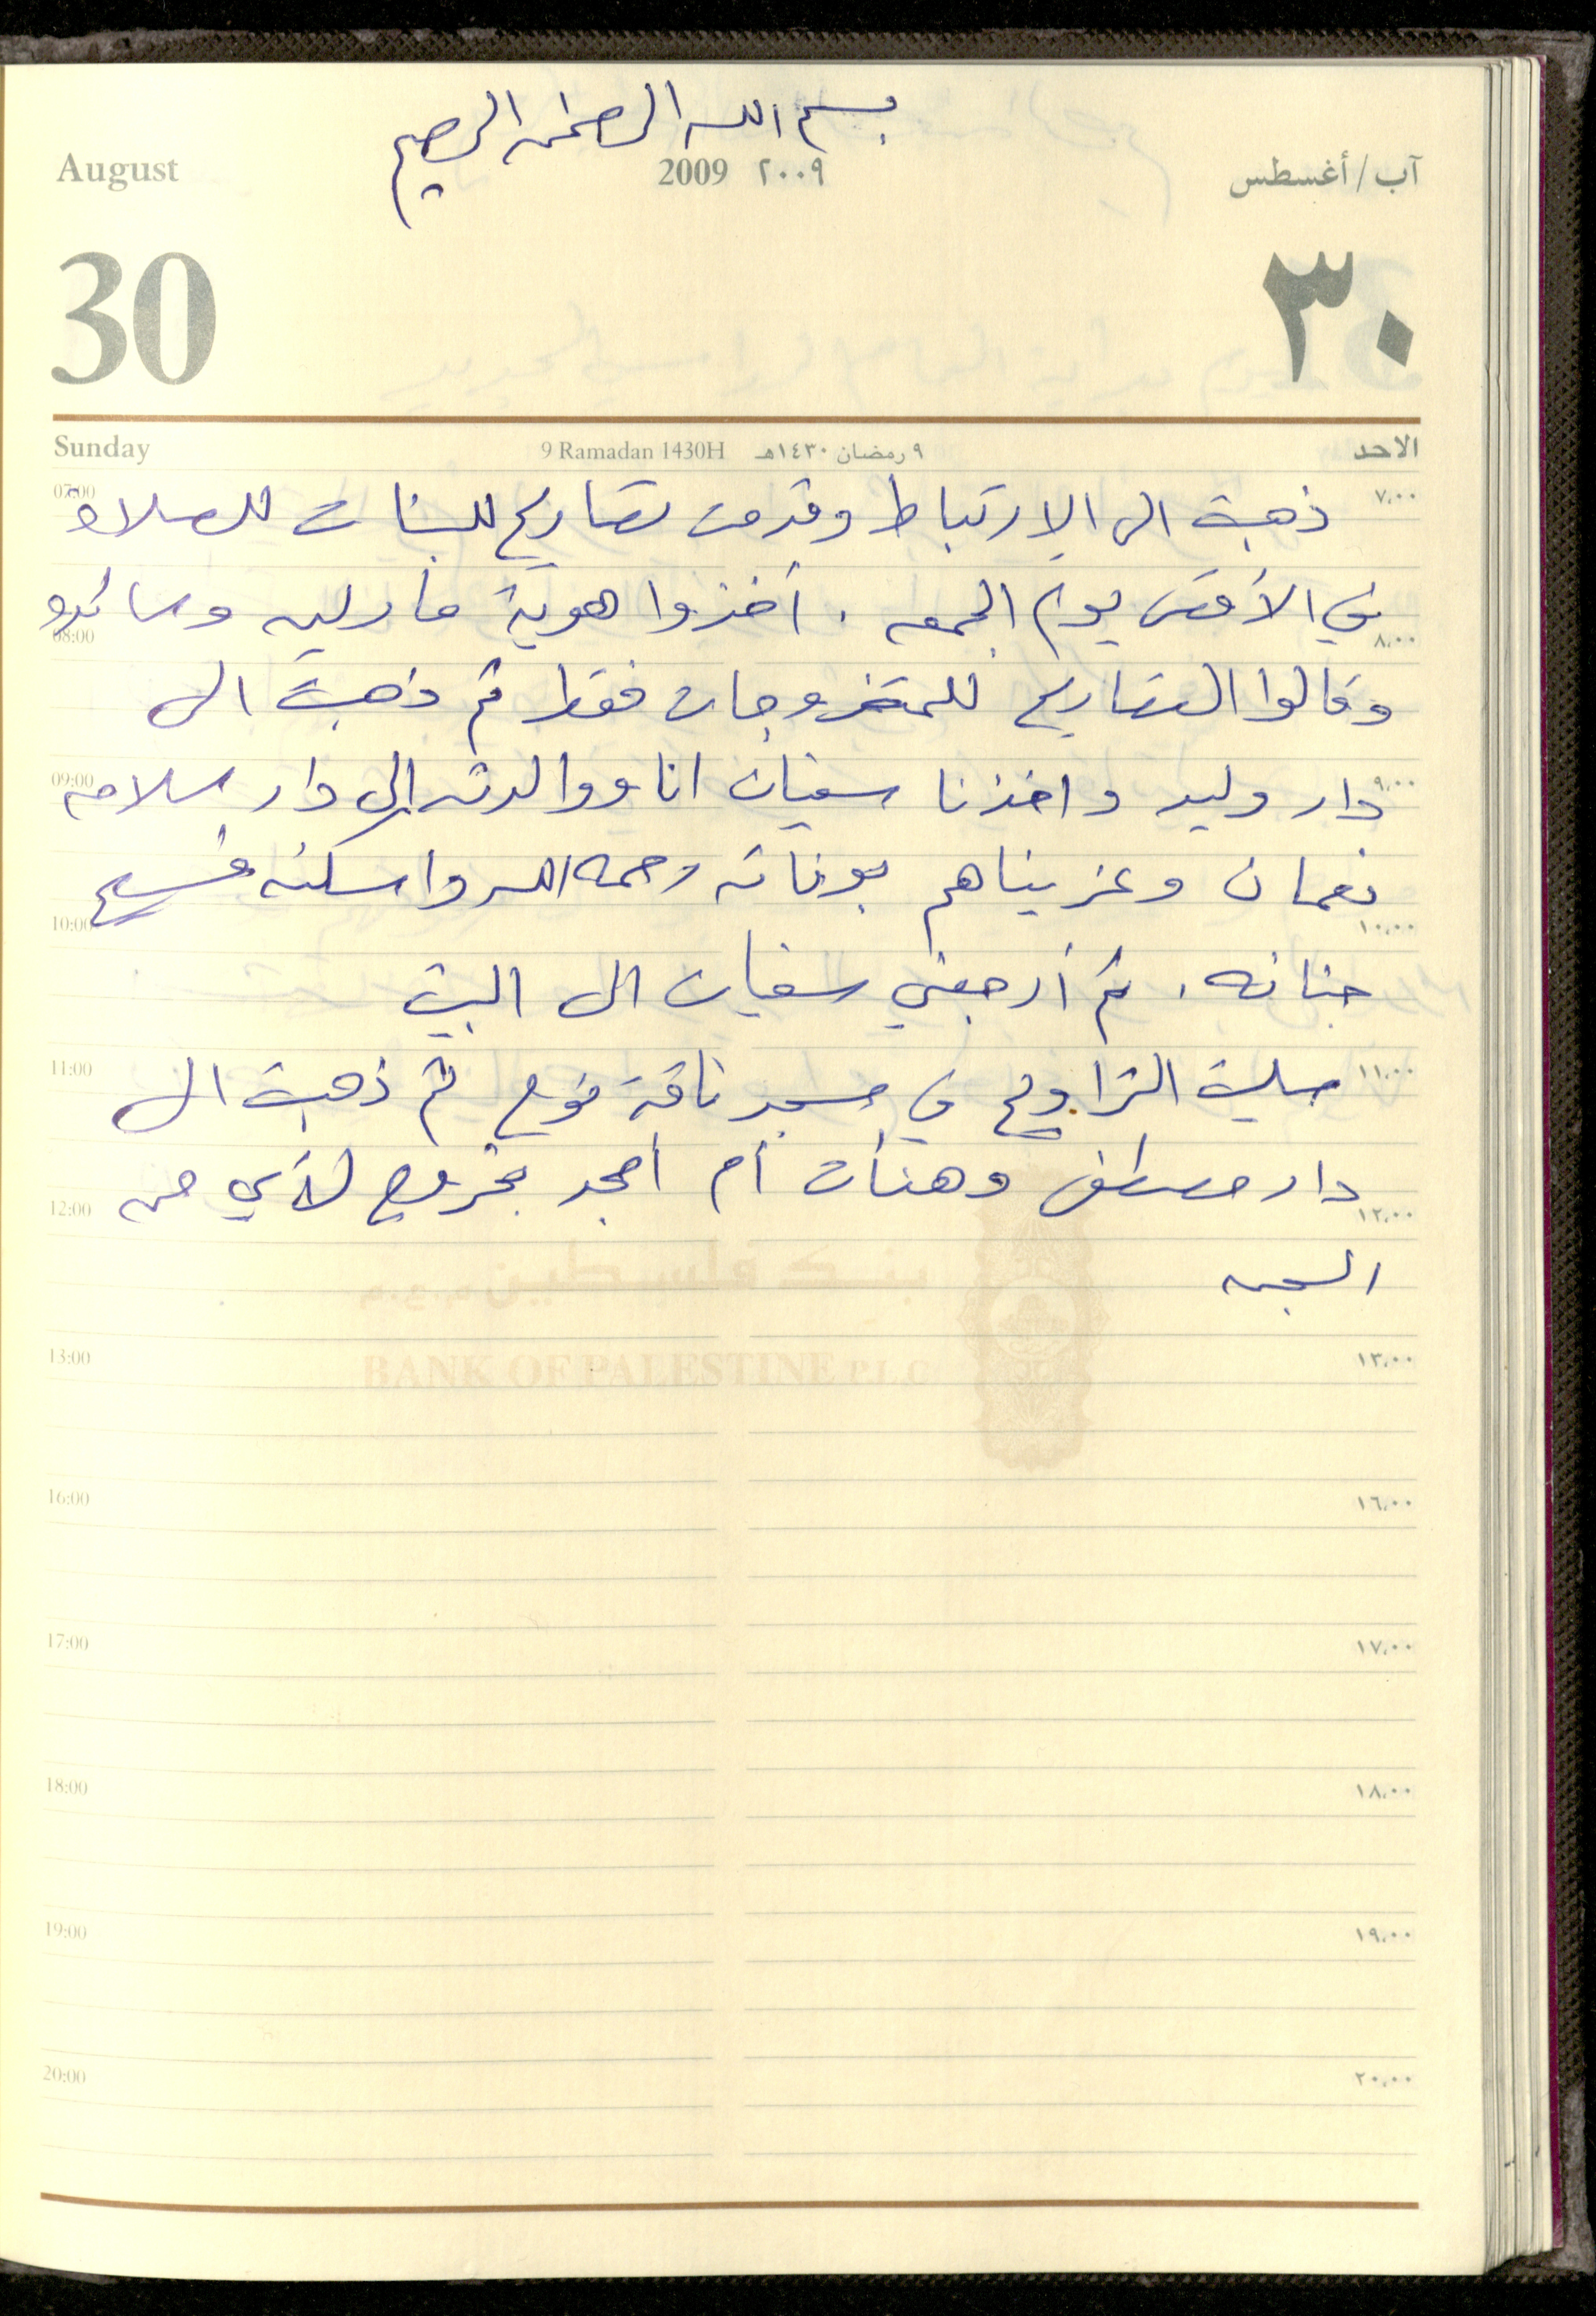 بسم الله الرحمن الرحيم
August 2009 ٢٠٠٩ آب/أغسطس
30 ٣٠
Sunday 9 Ramadan 1430H ٩ رمضان ١٤٣٠هـ الاحد
07:00 ذهبت الى الارتباط وقدمت تصاريح للبنات للصلاة ٧,٠٠
في الأقصى يوم الجمعه . أخذوا هوية مادلين وساندو
08:00 ٨,٠٠
وقالوا التصاريح للمتزوجات فقط ثم ذهبت الى
09:00 دار وليد واخذنا سفيان انا ووالدته إلى دار سلامه ٩,٠٠
نعمان وعزيناهم بوفاته رحمه الله واسكنه فسيح
10:00 ١٠,٠٠
جنانه . ثم أرجعني سفيان الى البيت
11:00 صليت التراويح في مسجد ناقة نوح ثم ذهبت الى ١١,٠٠
دار مصطفى وهنأت أم أمجد بخروج لأي من
12:00 ١٢,٠٠
السجن
بنك فلسطين م.ع.م
13:00 ١٣,٠٠
BANK OF PALESTINE P.L.C
16:00 ١٦,٠٠
17:00 ١٧,٠٠
18:00 ١٨,٠٠
19:00 ١٩,٠٠
20:00 ٢٠,٠٠